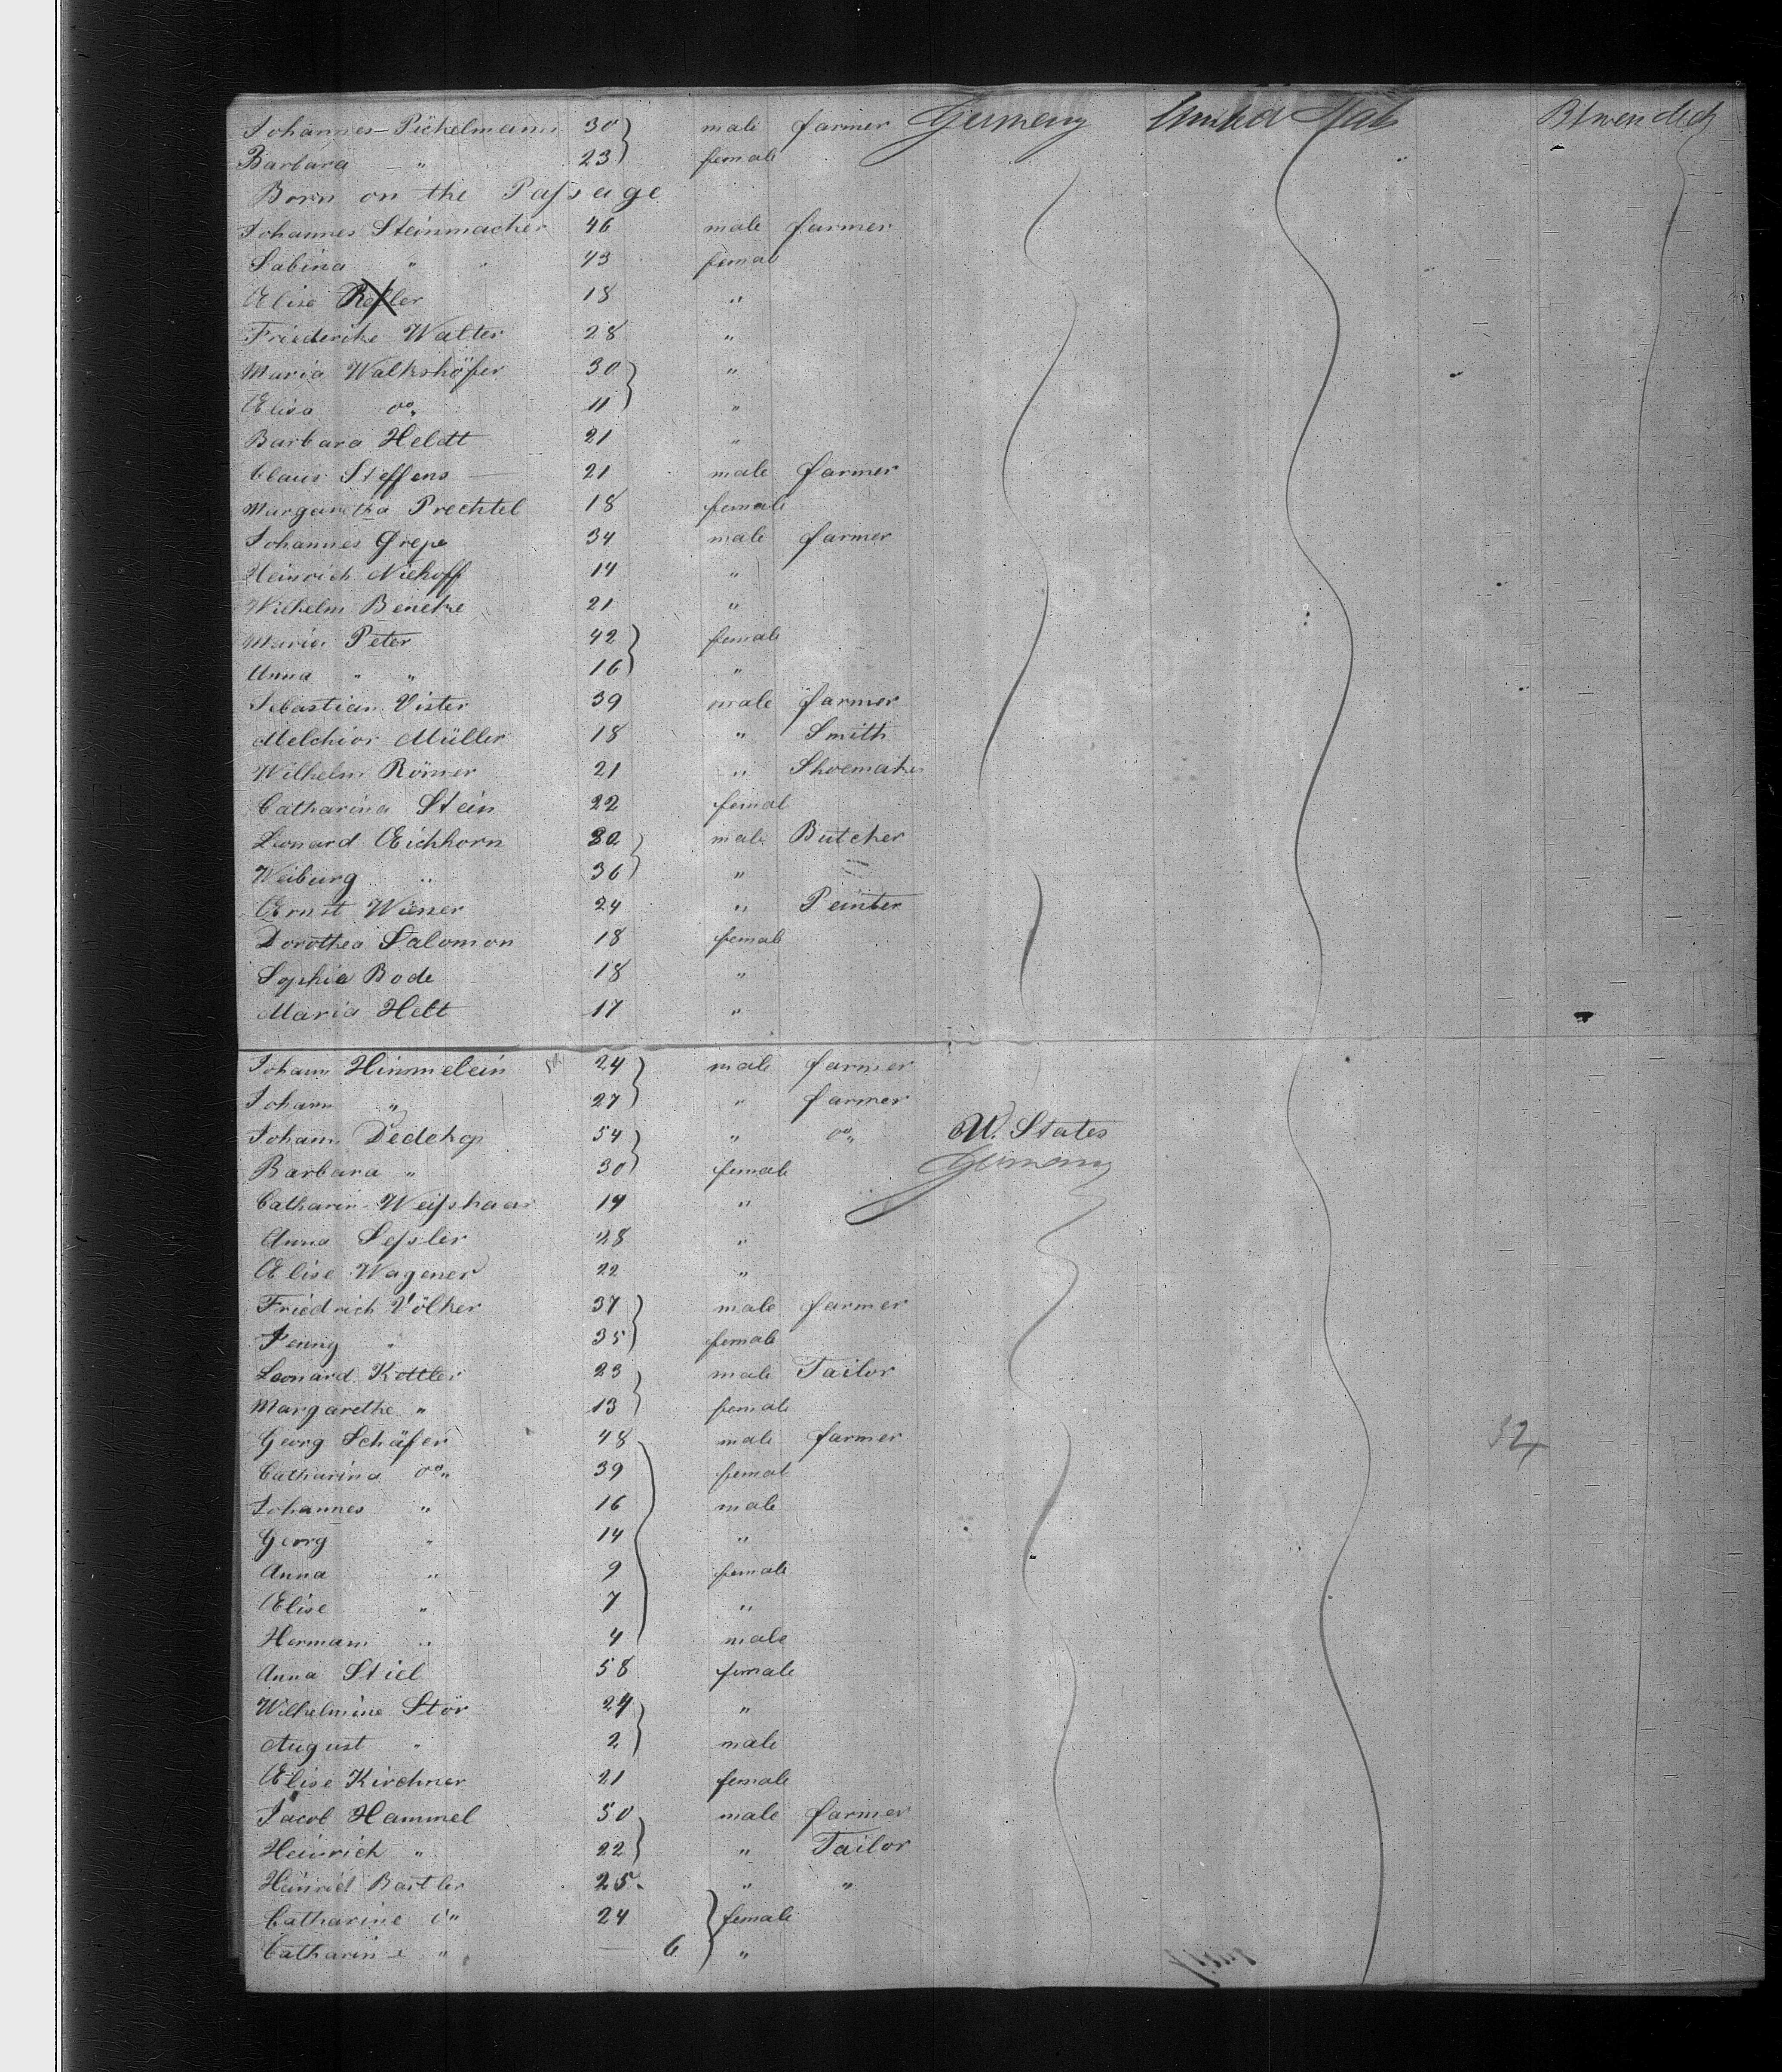 Johannes Pickelmann 30 male farmer Germany United Stat Btween deck
Barbara " 23 female
Born on the Passage
Johannes Steinmacher 46 male farmer
Sabina " 43 femal
Elise 18 "
Friederike Walter 28 "
Maria Walkshöfer 30 "
Elisa do" 11 "
Barbara Heldt 21 "
Claus Steffens 21 male farmer
Margaretha Prechtel 18 female
Johannes Grepe 34 male farmer
Heinrich Niehoff 14 "
Wilhelm Benetke 21 "
Maria Peter 42 female
Anna " " 16 "
Sebastian Vister 39 male farmer
Melchior Müller 18 " Smith
Wilhelm Römer 21 " Shoemaker
Catharina Stein 22 femal
Leonard Eichhorn 32 male Butcher
Weiburg " 36 "
Ernst Wiener 24 " Peinter
Dorothea Salomon 18 female
Sophia Bode 18 "
Maria Helt 17 "
Johann Himmelein 24 male farmer
Johann " 27 " farmer
Johann Dedekop 54 " do" U. States
Barbara " 30 female Germany
Catharin Weisshaar 14 "
Anna Sessler 28 "
Elise Wagener 22 "
Friedrich Völker 37 male farmer
Jenny " 35 female
Leonard Kottler 23 male Tailor
Margarethe " 13 female
Georg Schäfer 48 male farmer
Catharina do" 39 femal
Johannes " 16 male
Georg " 14 "
Anna " 9 female
Elise " 7 "
Hermann " 4 male
Anna Stiel 58 female
Wilhelmine Stör 24 "
August " 2 male
Elise Kirchner 21 female
Jacob Hammel 50 male farmer
Heinrich " 22 " Tailor
Heinrich Bartler 25 " "
Catharine d" 24 female
Catharine " — 6 "